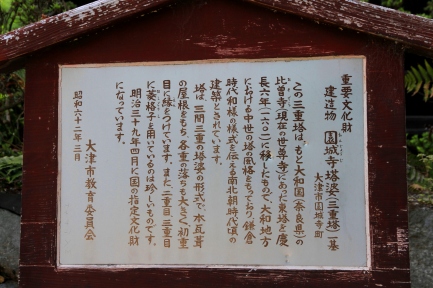 重要文化財
建造物 園城寺塔婆(三重塔)一基
大津市園城寺町
この三重塔は、もと大和国(奈良県)の
比曽寺(現在の世尊寺)にあった東塔を慶
長六年(一六〇一)に移したもので、大和地方
における中世の塔の風格をもっており、鎌倉
時代和様の様式を伝える南北朝時代頃の
建築とされています。
塔は、三間三重の塔婆の形式で、本瓦葺
の屋根をもち、各重の落ちも大きく、初重
目に縁をつけています。また、二重目、三重目
に菱格子を用いているのは珍しいものです。
明治三十九年四月に国の指定文化財
になっています。
大津市教育委員会
昭和六十二年三月